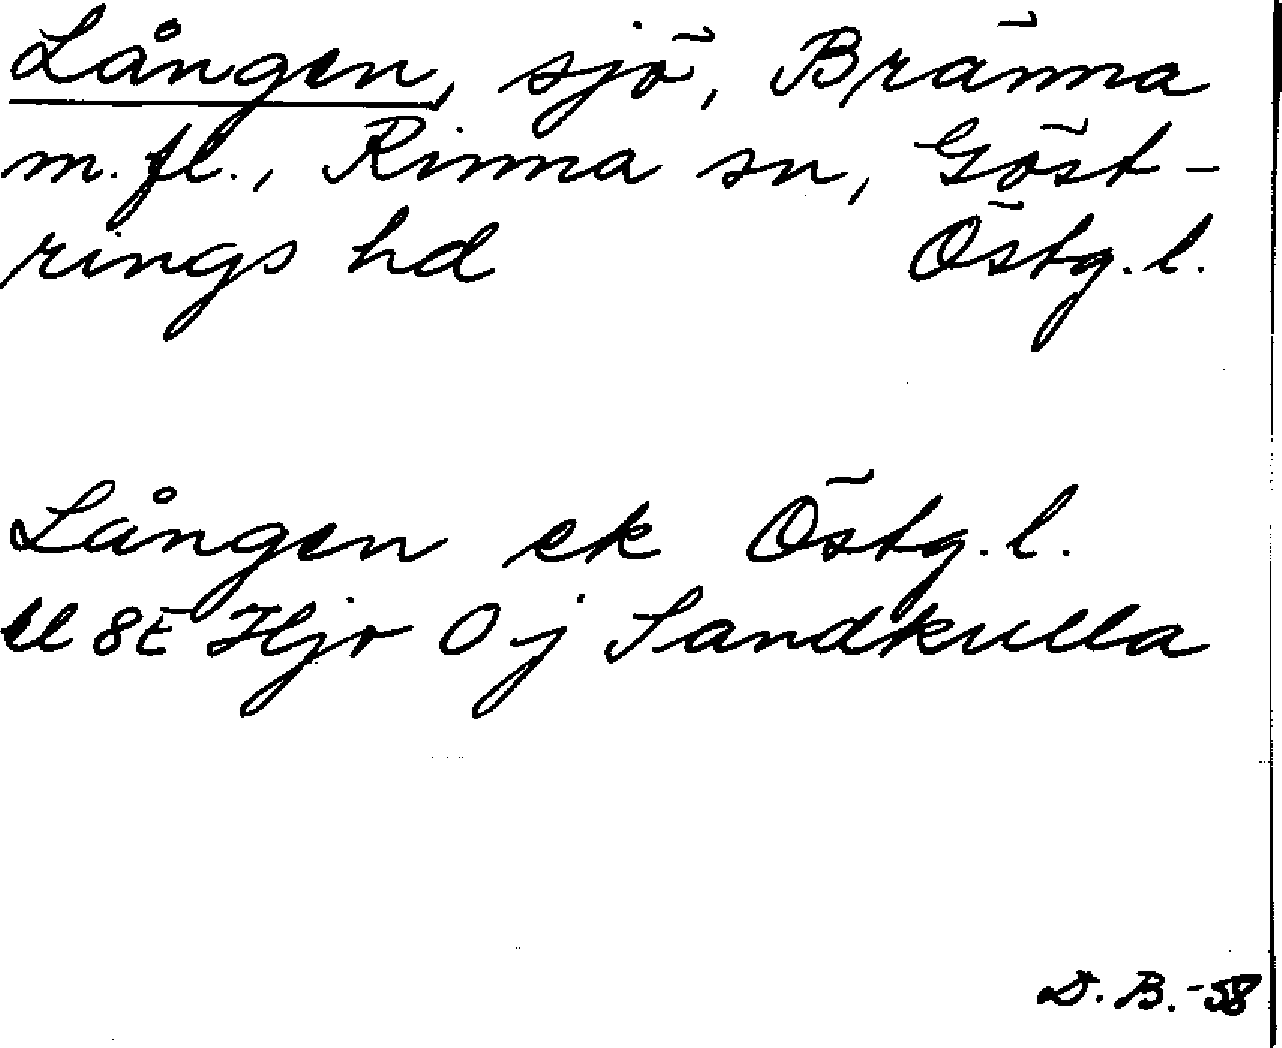 Lången, sjö, Bränna
m.fl., Rinna sn, Göst-
rings hd Östg.l.
Lången ek Östg.l.
bl 8E Hjo 0j Sandkulla
D.B.-58